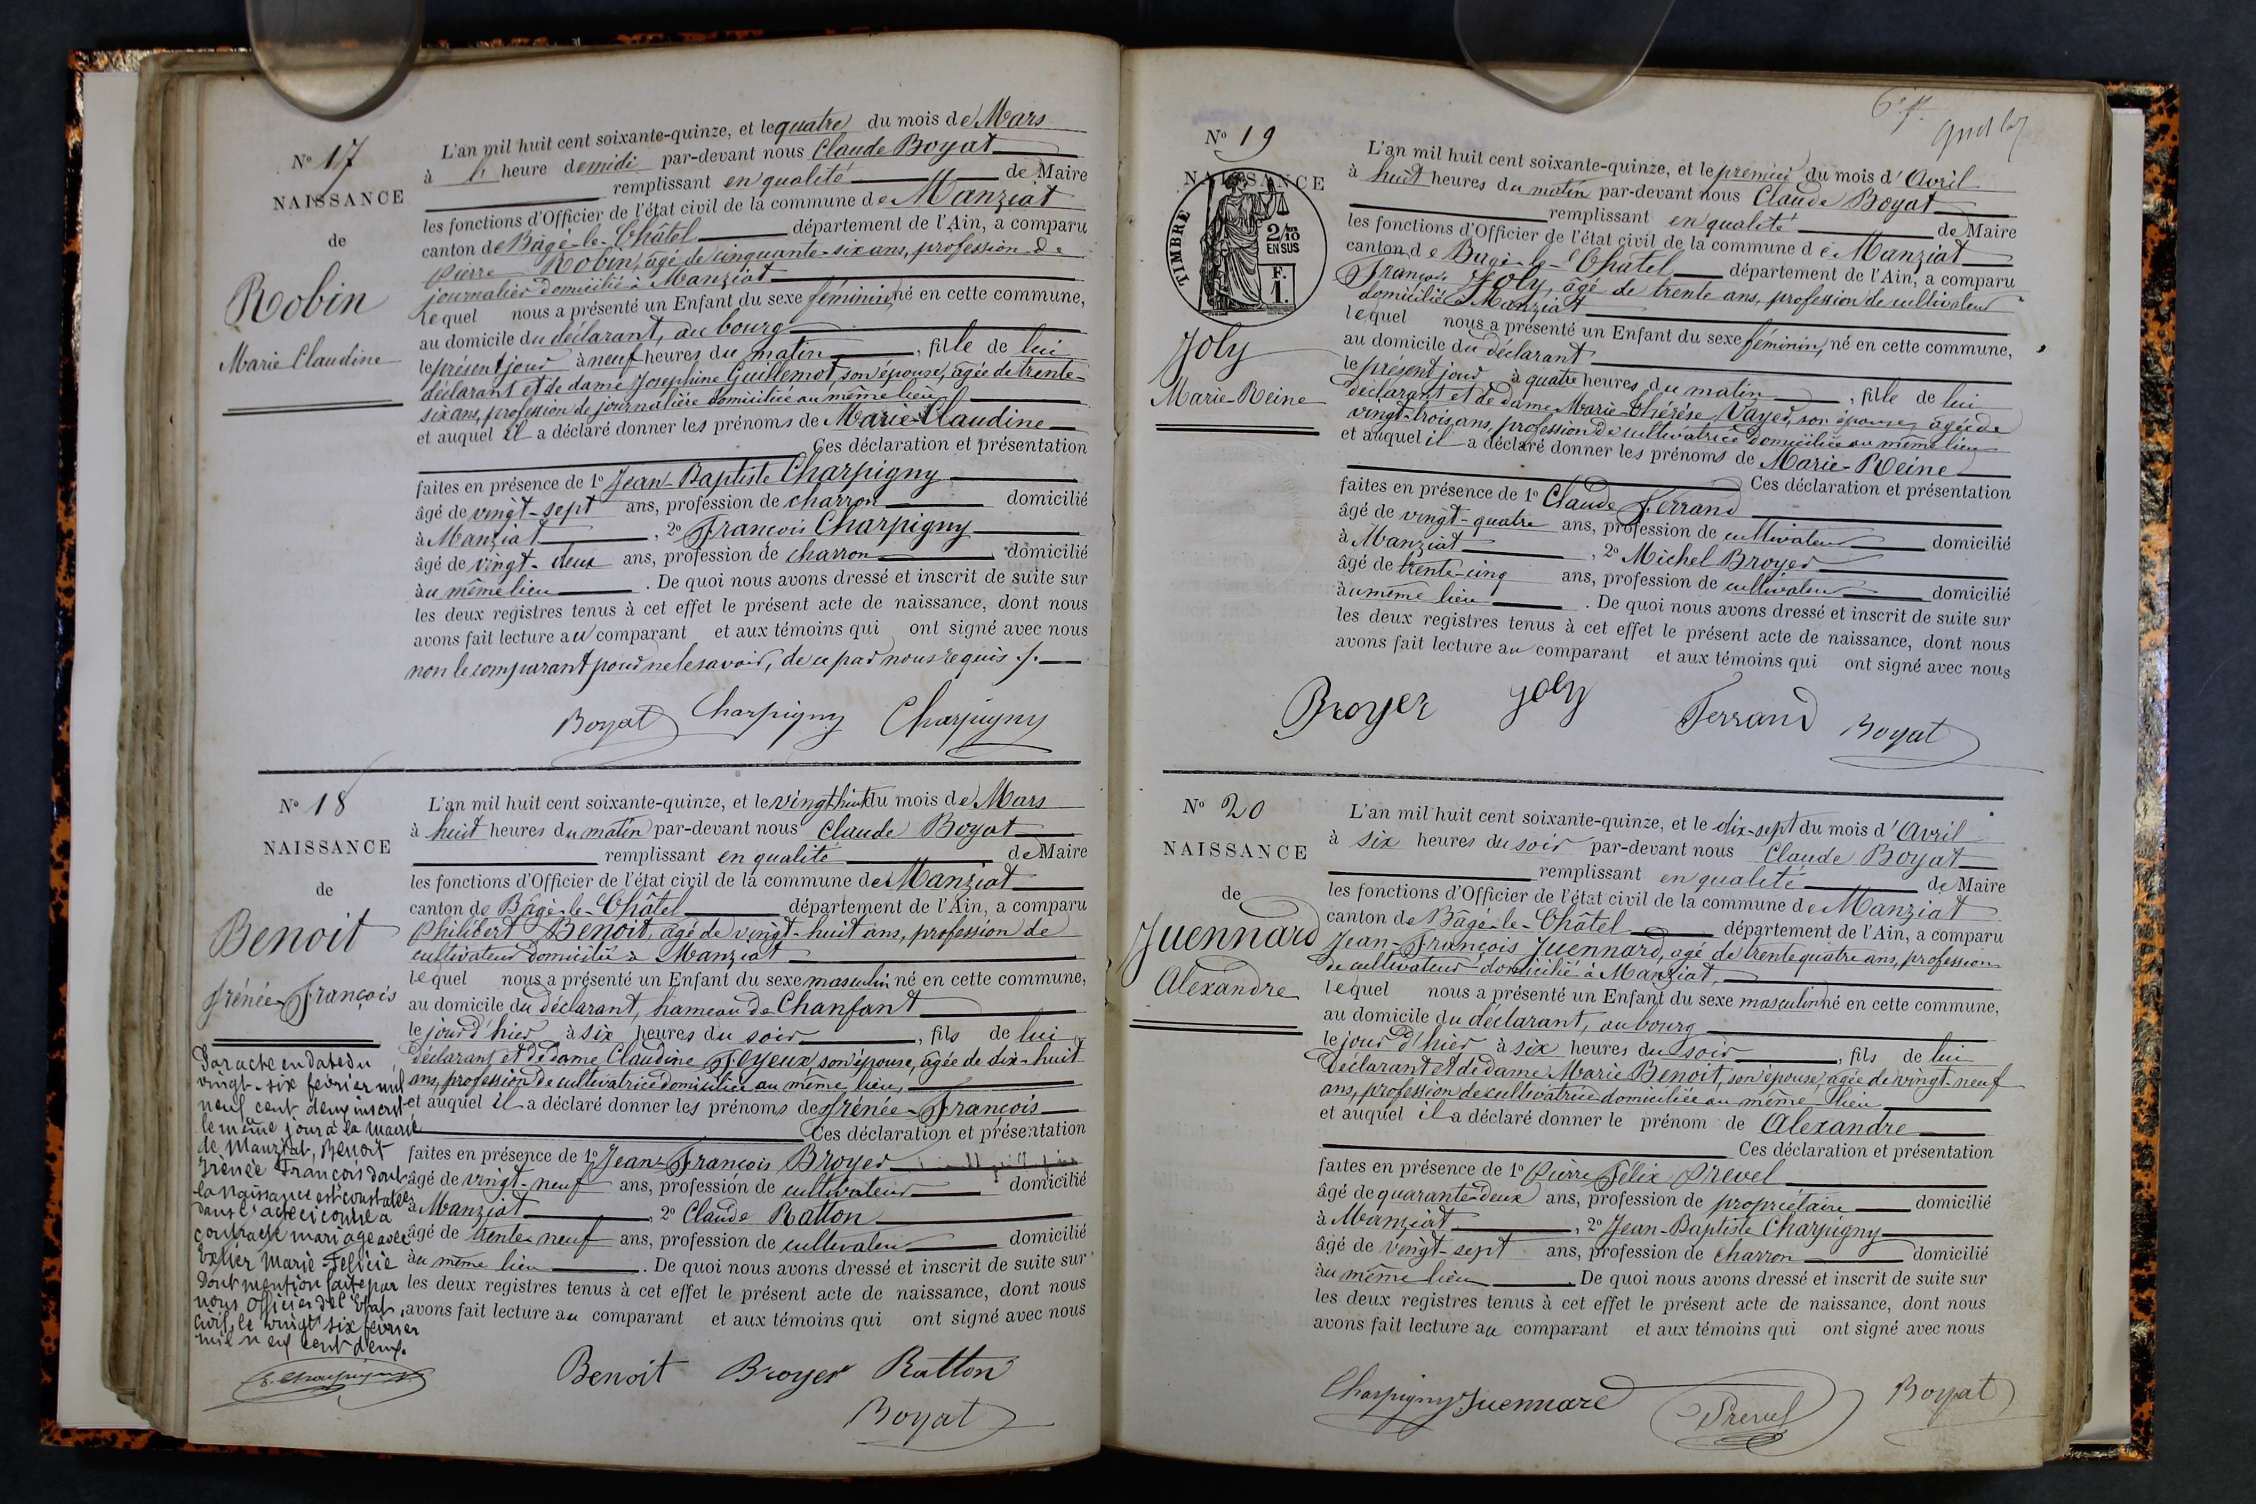 Nº 17
NAISSANCE
de
Robin
Marie Claudine
L'an mil huit cent soixante-quinze, et le quatre du mois de Mars
à heure de midi par-devant nous Claude Boyat
remplissant en qualité de Maire
les fonctions d'Officier de l'état civil de la commune de Manziat
canton de Bâgé-le-Châtel département de l'Ain, a comparu
Pierre Robin, âgé de cinquante-six ans, profession de
journalier domicilié à Manziat
lequel nous a présenté un Enfant du sexe féminin, né en cette commune,
au domicile du déclarant, au bourg
le présent jour à neuf heures du matin, fille de lui
déclarant et de dame Josephine Guillemot, son épouse, âgée de trente-
six ans, profession de journalière domiciliée au même lieu,
et auquel il a déclaré donner les prénoms de Marie-Claudine
Ces déclaration et présentation
faites en présence de 1º Jean-Baptiste Charpigny
âgé de vingt-sept ans, profession de charron domicilié
à Manziat, 2º François Charpigny
âgé de vingt-deux ans, profession de charron domicilié
au même lieu. De quoi nous avons dressé et inscrit de suite sur
les deux registres tenus à cet effet le présent acte de naissance, dont nous
avons fait lecture au comparant et aux témoins qui ont signé avec nous
non le comparant pour ne le savoir, de ce par nous requis ./.
Boyat Charpigny Charpigny
Nº 18
NAISSANCE
de
Benoit
Irénée François
L'an mil huit cent soixante-quinze, et le vingt-huit du mois de Mars
à huit heures du matin par-devant nous Claude Boyat
remplissant en qualité de Maire
les fonctions d'Officier de l'état civil de la commune de Manziat
canton de Bâgé-le-Châtel département de l'Ain, a comparu
Philibert Benoit, âgé de vingt-huit ans, profession de
cultivateur domicilié à Manziat
lequel nous a présenté un Enfant du sexe masculin né en cette commune,
au domicile du déclarant, hameau de Chanfant
le jour d'hier à six heures du soir, fils de lui
déclarant et de dame Claudine Feyeux, son épouse, âgée de dix-huit
ans, profession de cultivatrice domiciliée au même lieu,
et auquel il a déclaré donner les prénoms de Irénée-François
Ces déclaration et présentation
faites en présence de 1º Jean-François Broyer
âgé de vingt-neuf ans, profession de cultivateur domicilié
à Manziat, 2º Claude Ratton
âgé de trente neuf ans, profession de cultivateur domicilié
au même lieu. De quoi nous avons dressé et inscrit de suite sur
les deux registres tenus à cet effet le présent acte de naissance, dont nous
avons fait lecture au comparant et aux témoins qui ont signé avec nous
Par acte en date du
vingt-six février mil
neuf cent deux inscrit
le même jour à la mairie
de Manziat, Benoit
Irénée François dont
la naissance est constatée
dans l'acte ci contre a
contracté mariage avec
Marie-Félicie
Dont mention faite par
nous Officier de l'Etat
civil, le vingt six février
mil neuf cent deux.
Charpigny
Benoit Broyer Ratton
Boyat
6e f.
Nº 19
NAISSANCE
TIMBRE
2/10
EN SUS
F.
1.
Joly
Marie-Reine
L'an mil huit cent soixante-quinze, et le premier du mois d'Avril
à huit heures du matin par-devant nous Claude Boyat
remplissant en qualité de Maire
les fonctions d'Officier de l'état civil de la commune de Manziat
canton de Bagé-le-Châtel département de l'Ain, a comparu
François Joly, âgé de trente ans, profession de cultivateur
domicilié à Manziat
lequel nous a présenté un Enfant du sexe féminin, né en cette commune,
au domicile du déclarant
le présent jour à quatre heures du matin, fille de lui
déclarant et de dame Marie-Thérèse Vayer, son épouse, âgée de
vingt-trois ans, profession de cultivatrice domiciliée au même lieu
et auquel il a déclaré donner les prénoms de Marie-Reine
Ces déclaration et présentation
faites en présence de 1º Claude Ferrand
âgé de vingt-quatre ans, profession de cultivateur domicilié
à Manziat, 2º Michel Broyer
âgé de trente-cinq ans, profession de cultivateur domicilié
au même lieu. De quoi nous avons dressé et inscrit de suite sur
les deux registres tenus à cet effet le présent acte de naissance, dont nous
avons fait lecture au comparant et aux témoins qui ont signé avec nous
Broyer Joly Ferrand Boyat
Nº 20
NAISSANCE
de
Juennard
Alexandre
L'an mil huit cent soixante-quinze, et le dix-sept du mois d'Avril
à six heures du soir par-devant nous Claude Boyat
remplissant en qualité de Maire
les fonctions d'Officier de l'état civil de la commune de Manziat
canton de Bâgé-le-Châtel département de l'Ain, a comparu
Jean-François Juennard, âgé de trente quatre ans, profession
de cultivateur domicilié à Manziat,
lequel nous a présenté un Enfant du sexe masculin né en cette commune,
au domicile du déclarant, au bourg
le jour d'hier à six heures du soir, fils de lui
déclarant et de dame Marie Benoit, son épouse, âgée de vingt-neuf
ans, profession de cultivatrice domiciliée au même lieu
et auquel il a déclaré donner le prénom de Alexandre
Ces déclaration et présentation
faites en présence de 1º Pierre Félix Prevel
âgé de quarante-deux ans, profession de propriétaire domicilié
à Manziat, 2º Jean-Baptiste Charpigny
âgé de vingt-sept ans, profession de charron domicilié
au même lieu. De quoi nous avons dressé et inscrit de suite sur
les deux registres tenus à cet effet le présent acte de naissance, dont nous
avons fait lecture au comparant et aux témoins qui ont signé avec nous
Charpigny Juennard Prevel Boyat